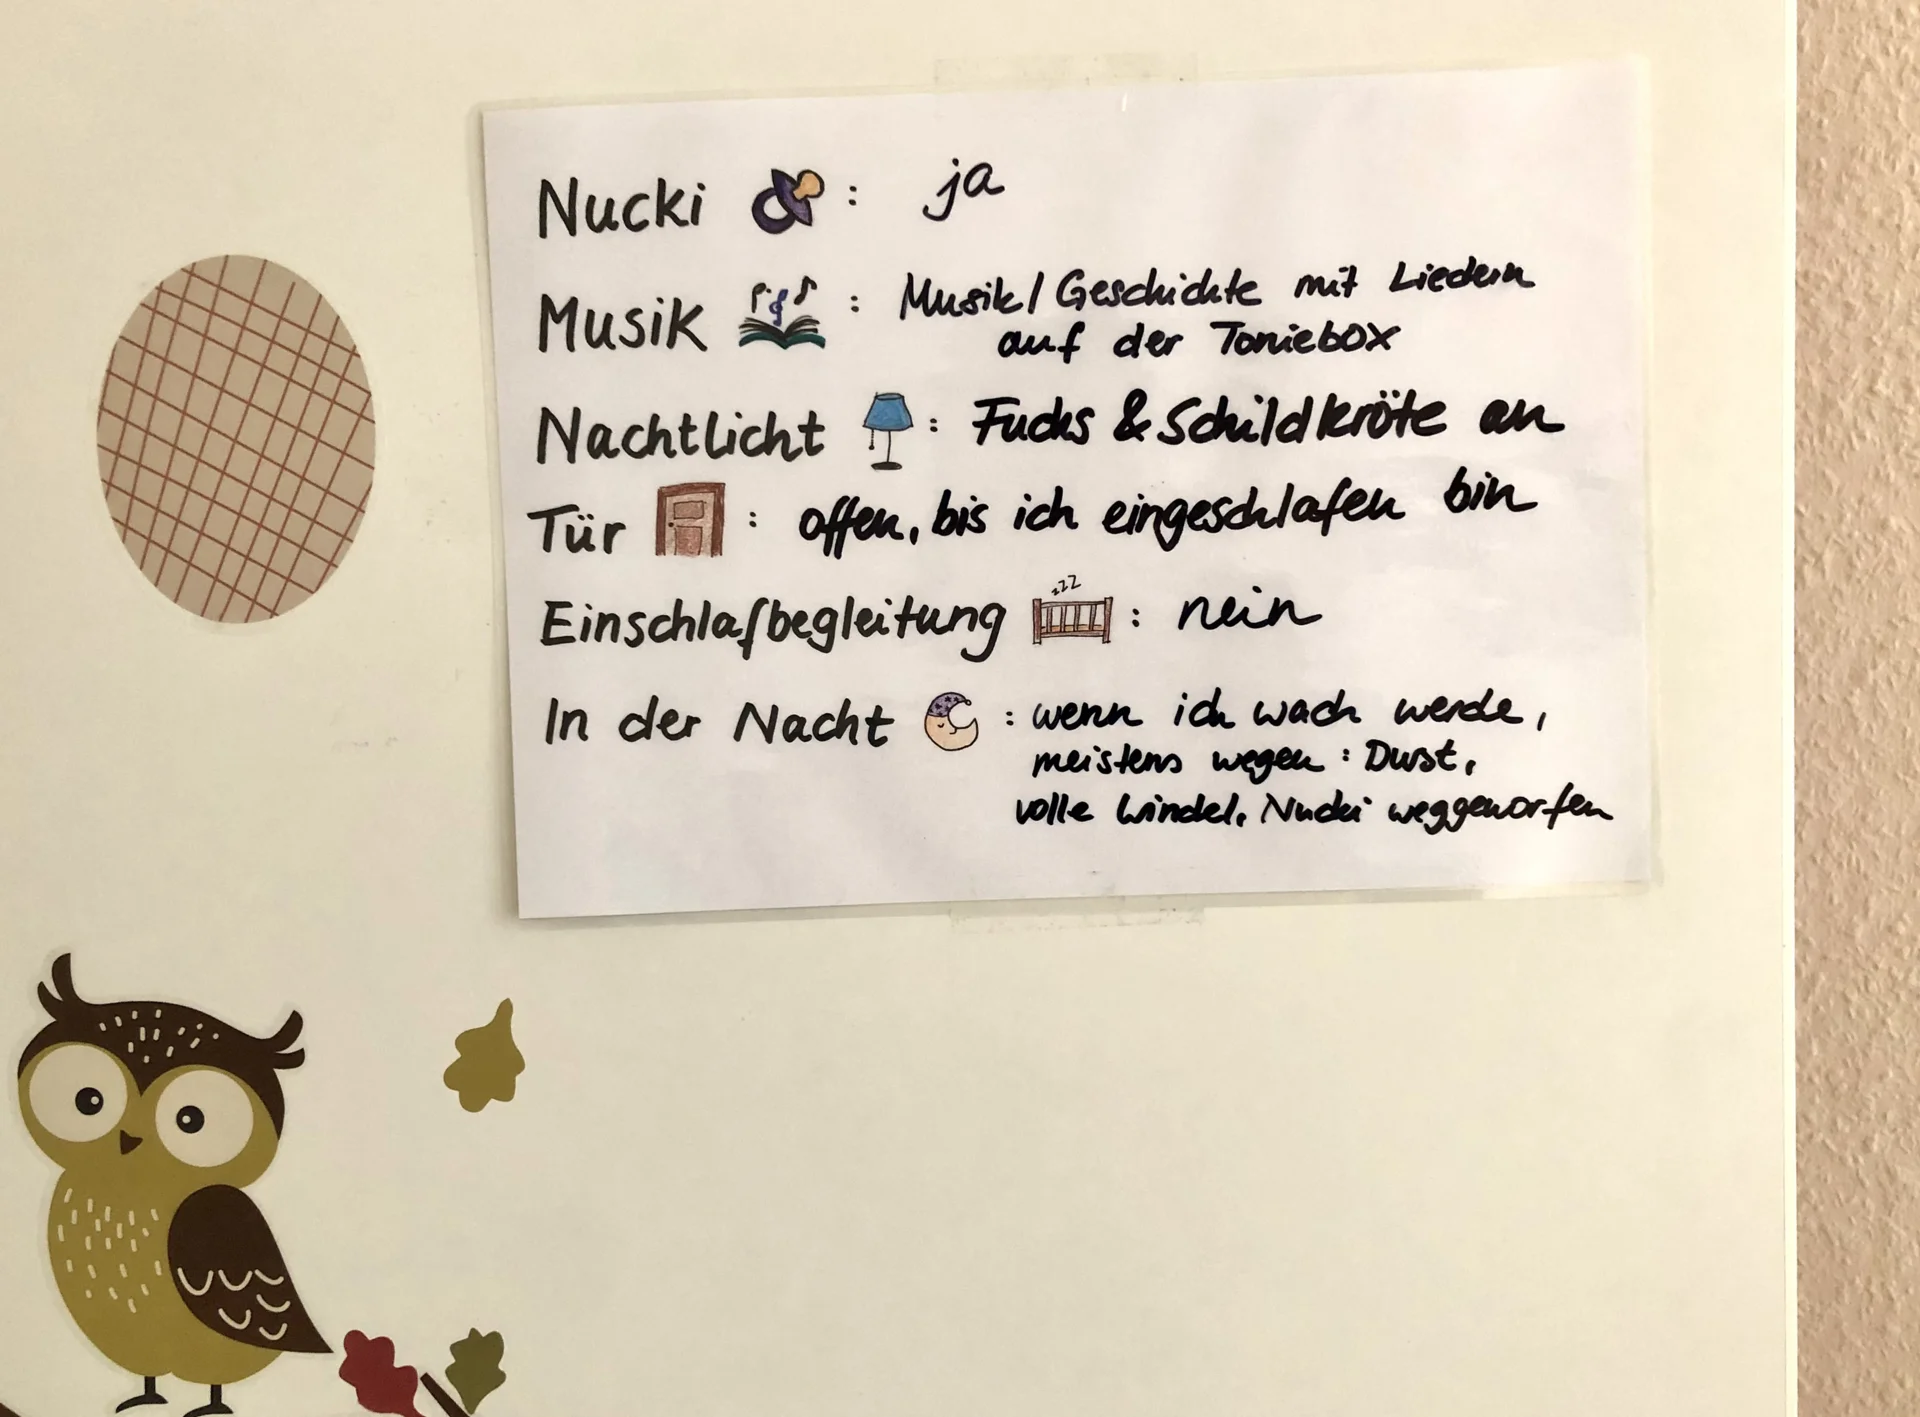 Nucki : ja
Musik : Musik/Geschichte mit Liedern
auf der Toniebox
Nachtlicht : Fuchs & Schildkröte an
Tür : offen, bis ich eingeschlafen bin
zzz
Einschlafbegleitung : nein
In der Nacht : wenn ich wach werde,
meistens wegen : Durst,
volle Windel, Nucki weggeworfen